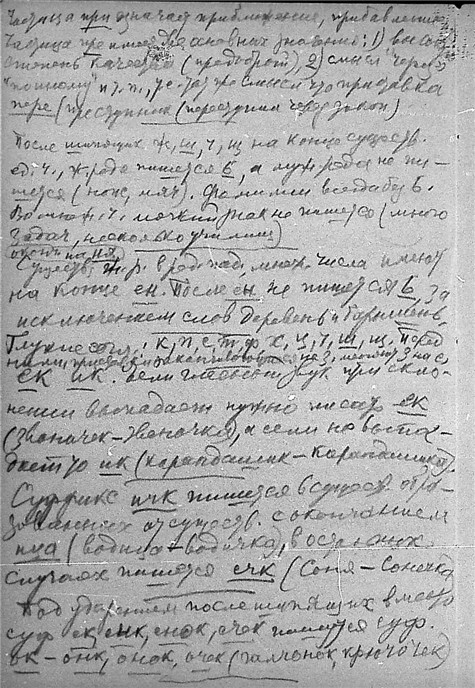 Частица при означает приближение, прибавление
Частица пре имеет два основных значения: 1) высокую
степень качества (предобрый) 2) смысл "через"
"по иному" и т. п., т.е. тот же смысл что приставка
пере (преступник (переступил через закон)
После шипящих ж, ш, ч, щ на конце существ.
ед. ч., ж. рода пишется ь, а муж. рода не пи-
шется (нож, мяч). Фамилии всегда без ь.
Во множ. ч. мягкий знак не пишется (много
задач, несколько училищ)
оконч. на ня,
Существ. ж. р. в род. пад. множ. числа имеют
на конце ен. После ен не пишется ь, за
исключением слов деревень и барышень.
Глухие согл. к, п, с, т, ф, х, ц, ч, ш, щ. Перед
ними приставки заканчивающиеся на з, меняют з на с.
ек ик. Если гласный звук при скло-
нении выпадает нужно писать ек
(звоночек - звоночка), а если не выпа-
дает то ик (карандашик - карандашика).
Суффикс ичк пишется в существ. обра-
зованных от существ. с окончанием
ица (водица - водичка), в остальных
случаях пишется ечк (Соня - Сонечка)
Под ударением после шипящих вместо
суф. ек, енк, енок, ечек пишутся суф.
ок - онк, онок, очек (галчонок, крючочек)